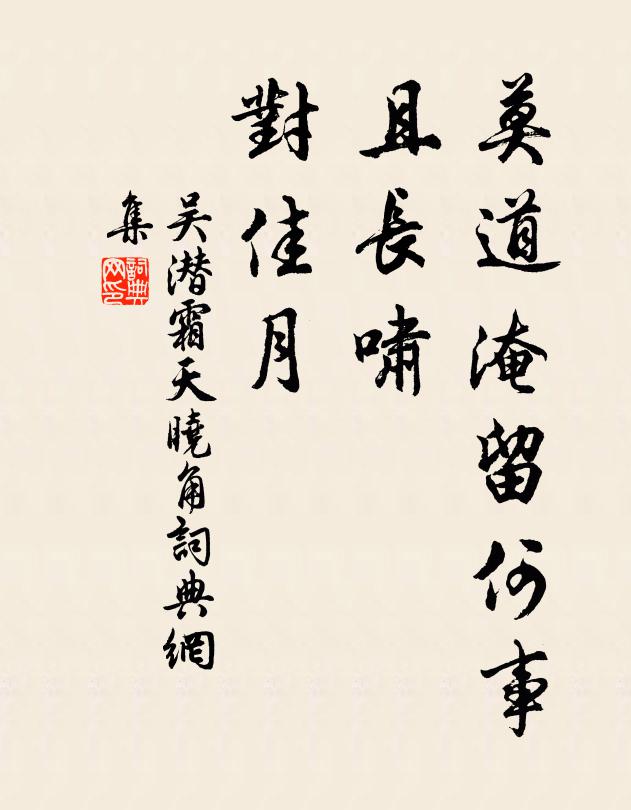 莫道淹留何事
且長嘯
對佳月
吴潜霜天曉角詞典網
集
詞典網印